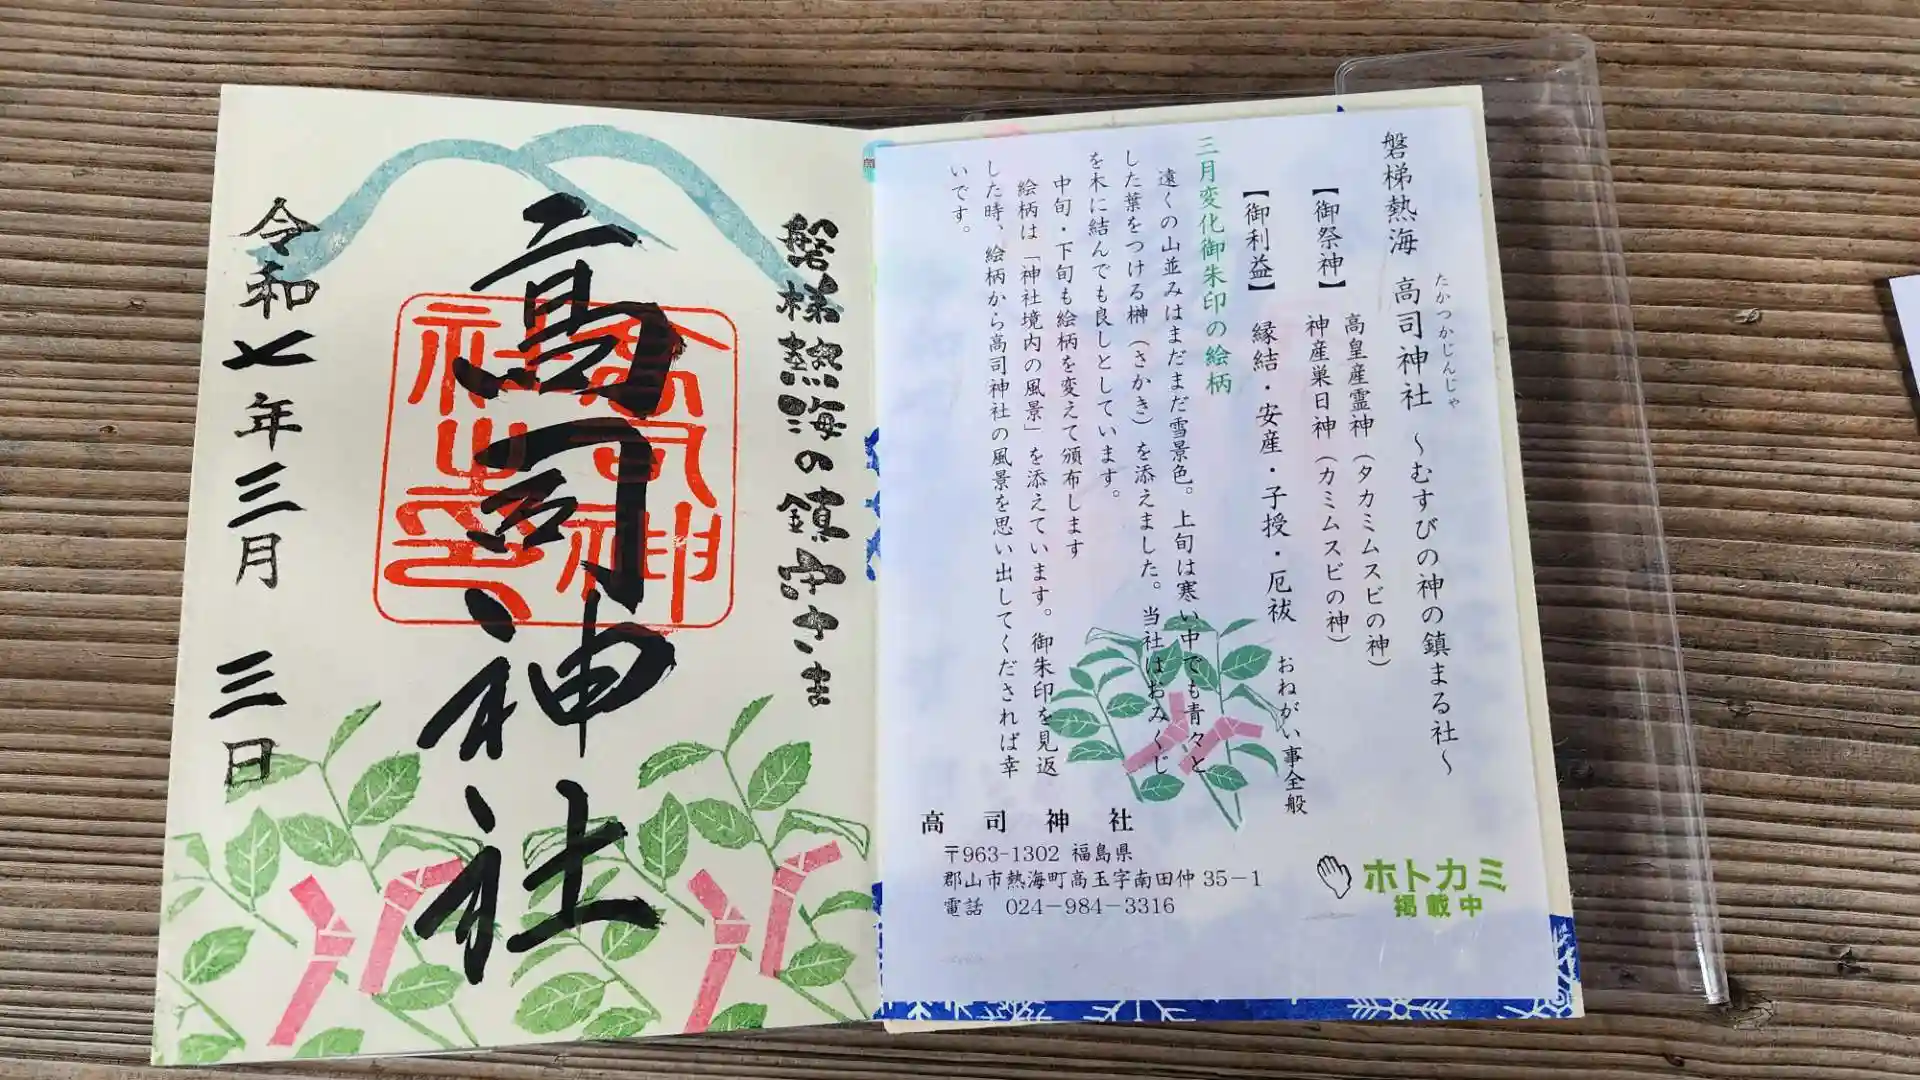 磐梯熱海 高司神社 ～むすびの神の鎮まる社～
たかつかじんじゃ
【御祭神】 高皇産霊神（タカミムスビの神）
神産巣日神（カミムスビの神）
【御利益】 縁結・安産・子授・厄祓 おねがい事全般
三月変化御朱印の絵柄
遠くの山並みはまだまだ雪景色。上旬は寒い中でも青々と
した葉をつける榊（さかき）を添えました。当社はおみくじ
を木に結んでも良しとしています。
中旬・下旬も絵柄を変えて頒布します
絵柄は「神社境内の風景」を添えています。御朱印を見返
した時、絵柄から高司神社の風景を思い出してくだされば幸
いです。
高司神社
〒963-1302 福島県
郡山市熱海町高玉字南田仲35－1
電話 024－984－3316
ホトカミ
掲載中
磐梯熱海の鎮守さま
高司神社
高司神
社之印
令和七年三月 三日